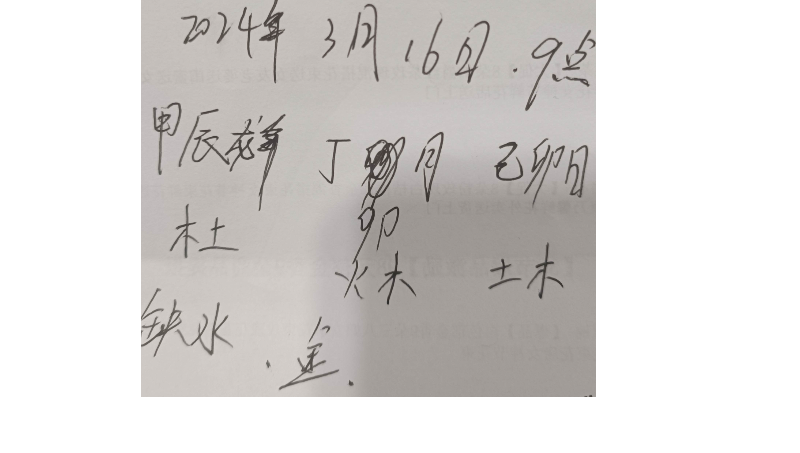 2024年 3月 16日.9点
甲辰年 丁卯月 己卯日
木土 火木 土木
缺水.金.